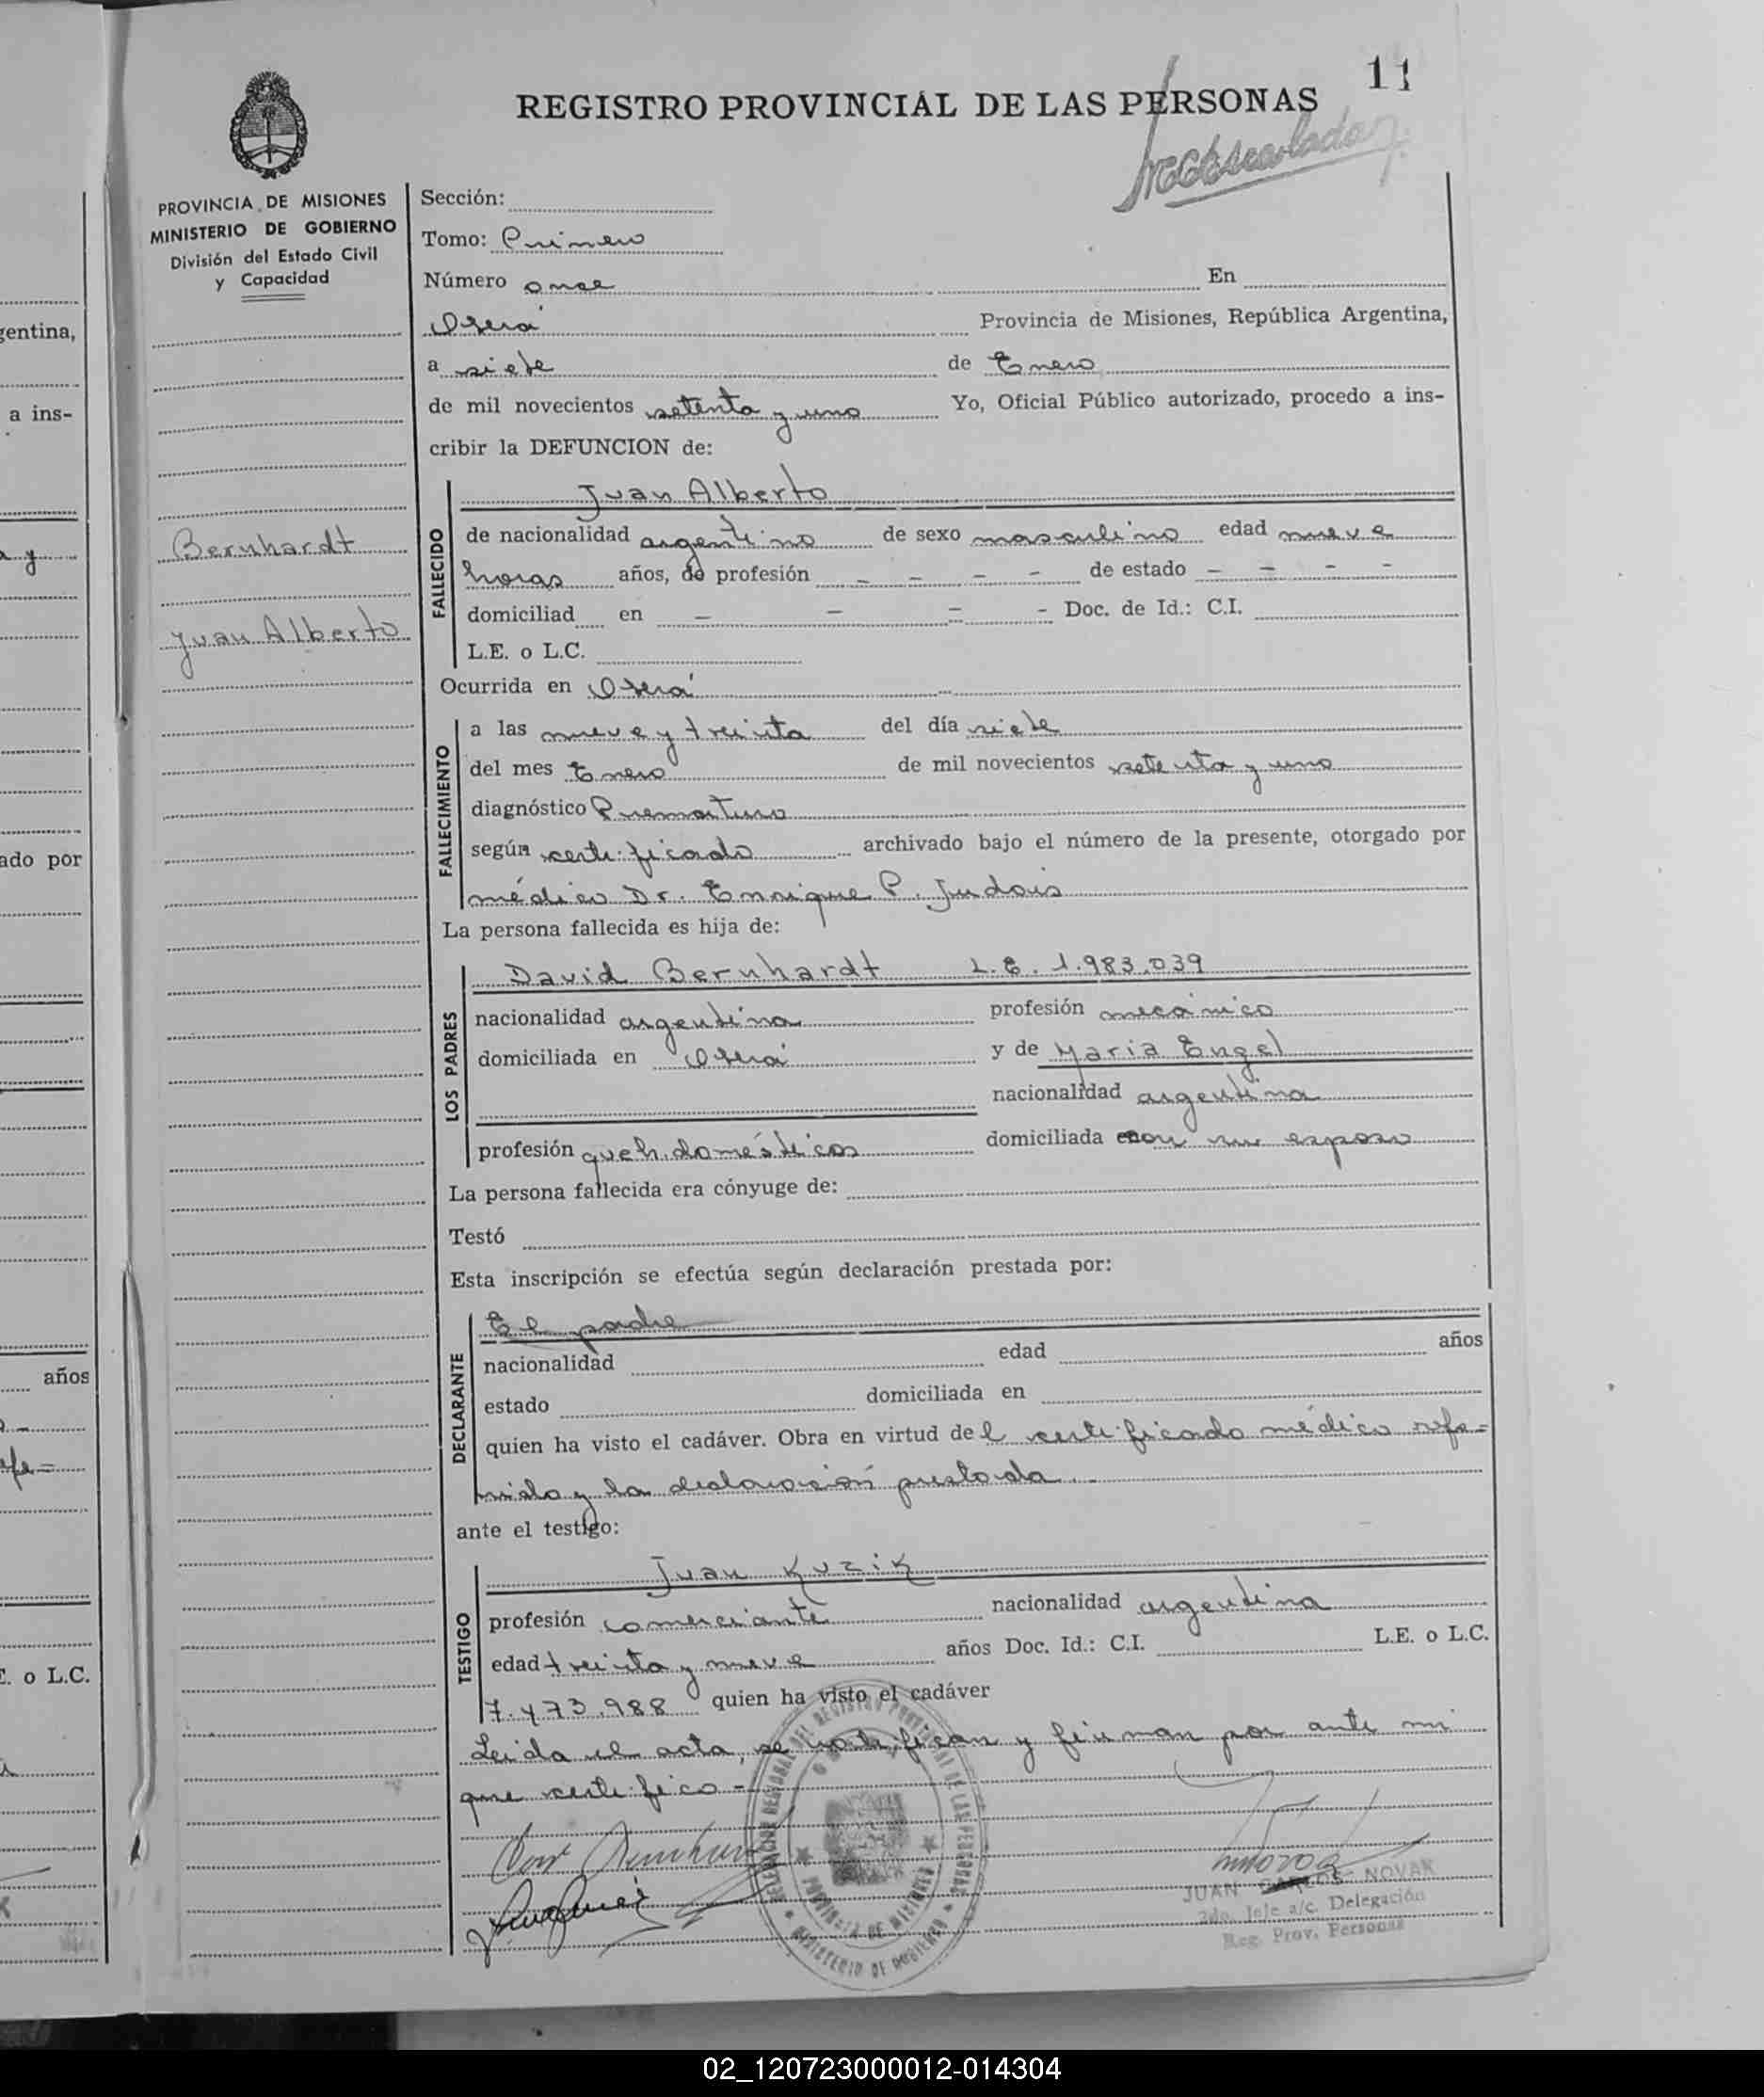 11
REGISTRO PROVINCIAL DE LAS PERSONAS
PROVINCIA DE MISIONES
MINISTERIO DE GOBIERNO
División del Estado Civil
y Capacidad
Bernhardt
Juan Alberto
Sección:
Tomo: Primero
Número once En
Oberá Provincia de Misiones, República Argentina,
a siete de Enero
de mil novecientos setenta y uno Yo, Oficial Público autorizado, procedo a ins-
cribir la DEFUNCION de:
FALLECIDO
Juan Alberto
de nacionalidad argentino de sexo masculino edad nueve
horas años, de profesión - - - - de estado - - - -
domiciliad en - - - - Doc. de Id.: C.I.
L.E. o L.C.
Ocurrida en Oberá
FALLECIMIENTO
a las nueve y treinta del día siete
del mes Enero de mil novecientos setenta y uno
diagnóstico Prematuro
según certificado archivado bajo el número de la presente, otorgado por
médico Dr. Enrique P.
La persona fallecida es hija de:
LOS PADRES
David Bernhardt L.E. 1.983.039
nacionalidad argentina profesión mecánico
domiciliada en Oberá y de Maria Engel
nacionalidad argentina
profesión queh. domésticos domiciliada con su esposo
La persona fallecida era cónyuge de:
Testó
Esta inscripción se efectúa según declaración prestada por:
DECLARANTE
El padre
nacionalidad edad años
estado domiciliada en
quien ha visto el cadáver. Obra en virtud del certificado médico refe=
rido y la declaración prestada.-
ante el testigo:
TESTIGO
Juan Kuzik
profesión comerciante nacionalidad argentina
edad treinta y nueve años Doc. Id.: C.I. L.E. o L.C.
7.473.988 quien ha visto el cadáver
Leida el acta, se ratifican y firman por ante mi
que certifico -
PROVINCIA DE MISIONES
MINISTERIO DE GOBIERNO
JUAN CARLOS NOVAK
2do. Jefe a/c. Delegación
Reg. Prov. Personas
gentina,
a ins-
y
ado por
años
E. o L.C.
02_120723000012-014304